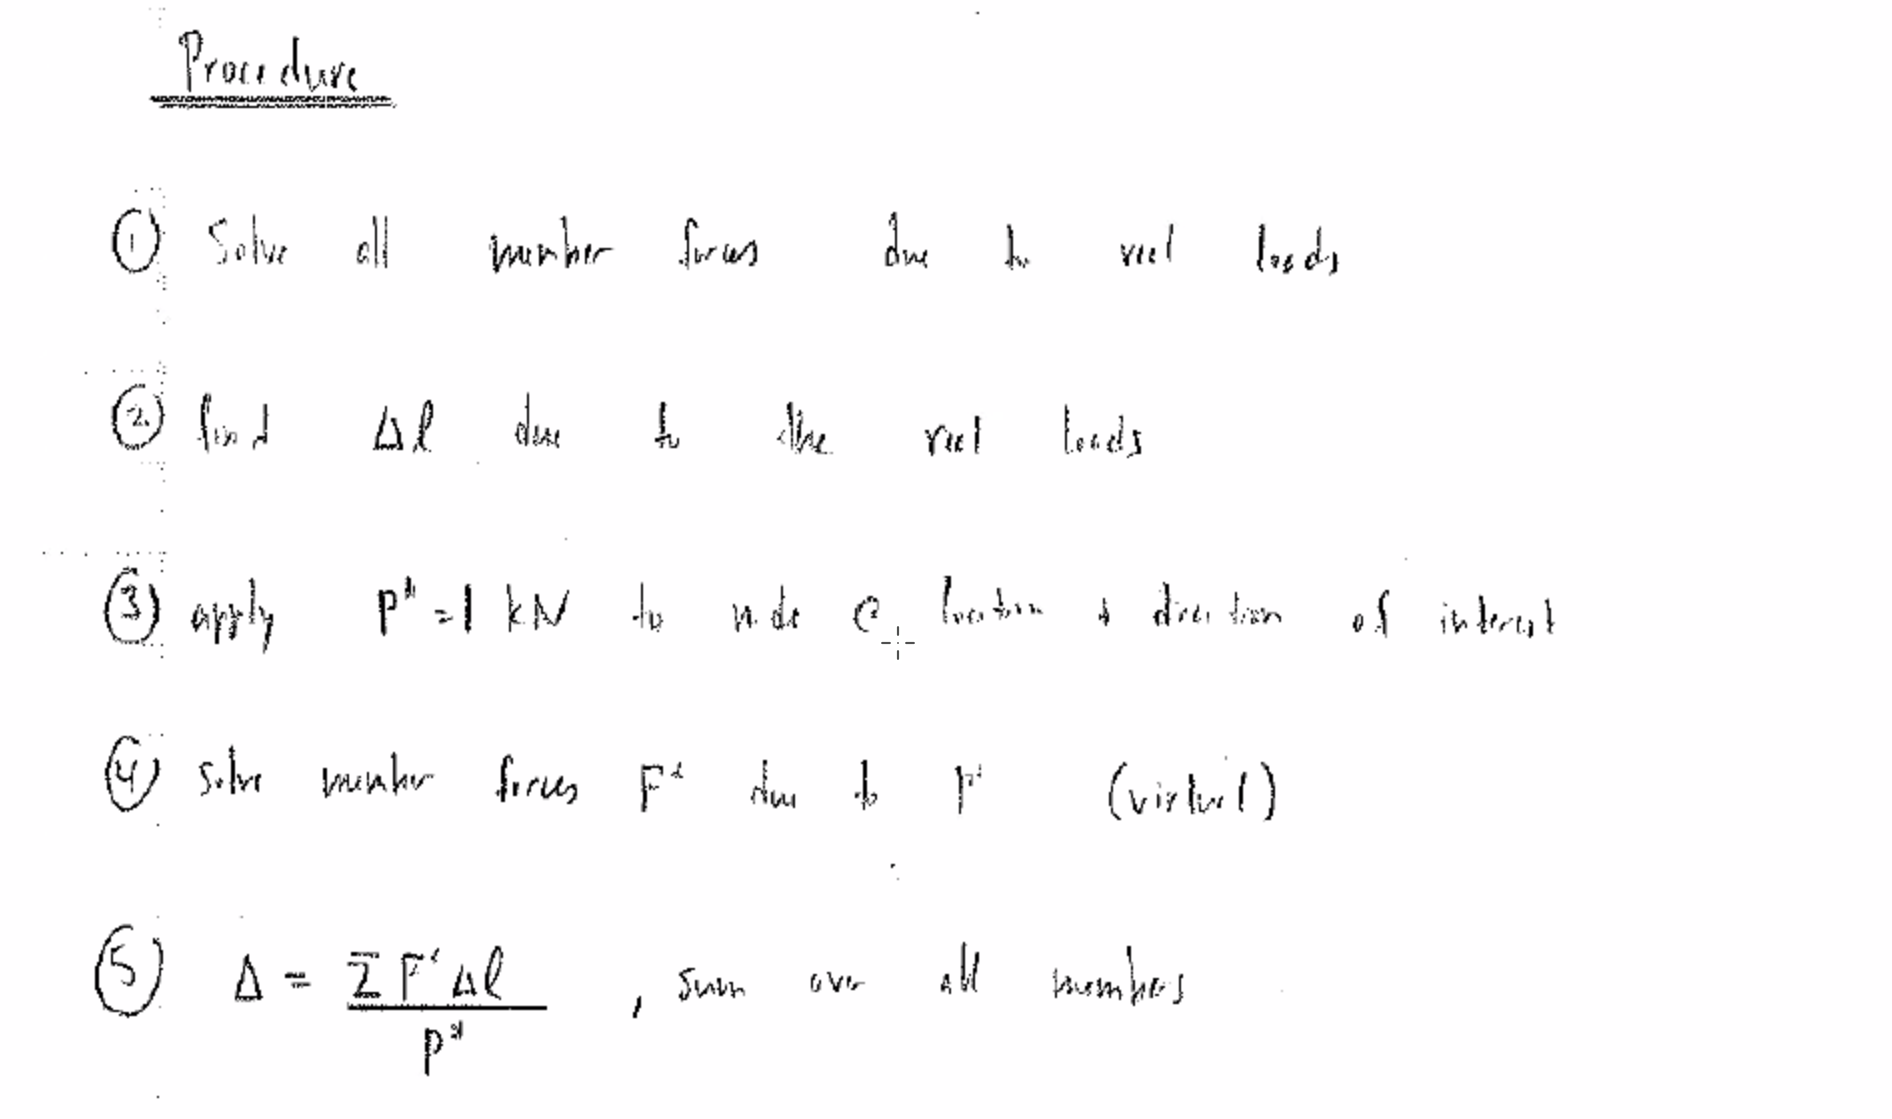 Procedure
① Solve all member forces due to real loads
② find Δl due to the real loads
③ apply P* = 1 kN to node @ location & direction of interest
④ solve member forces F* due to P* (virtual)
⑤ Δ = Σ F* Δl / P* , sum over all members